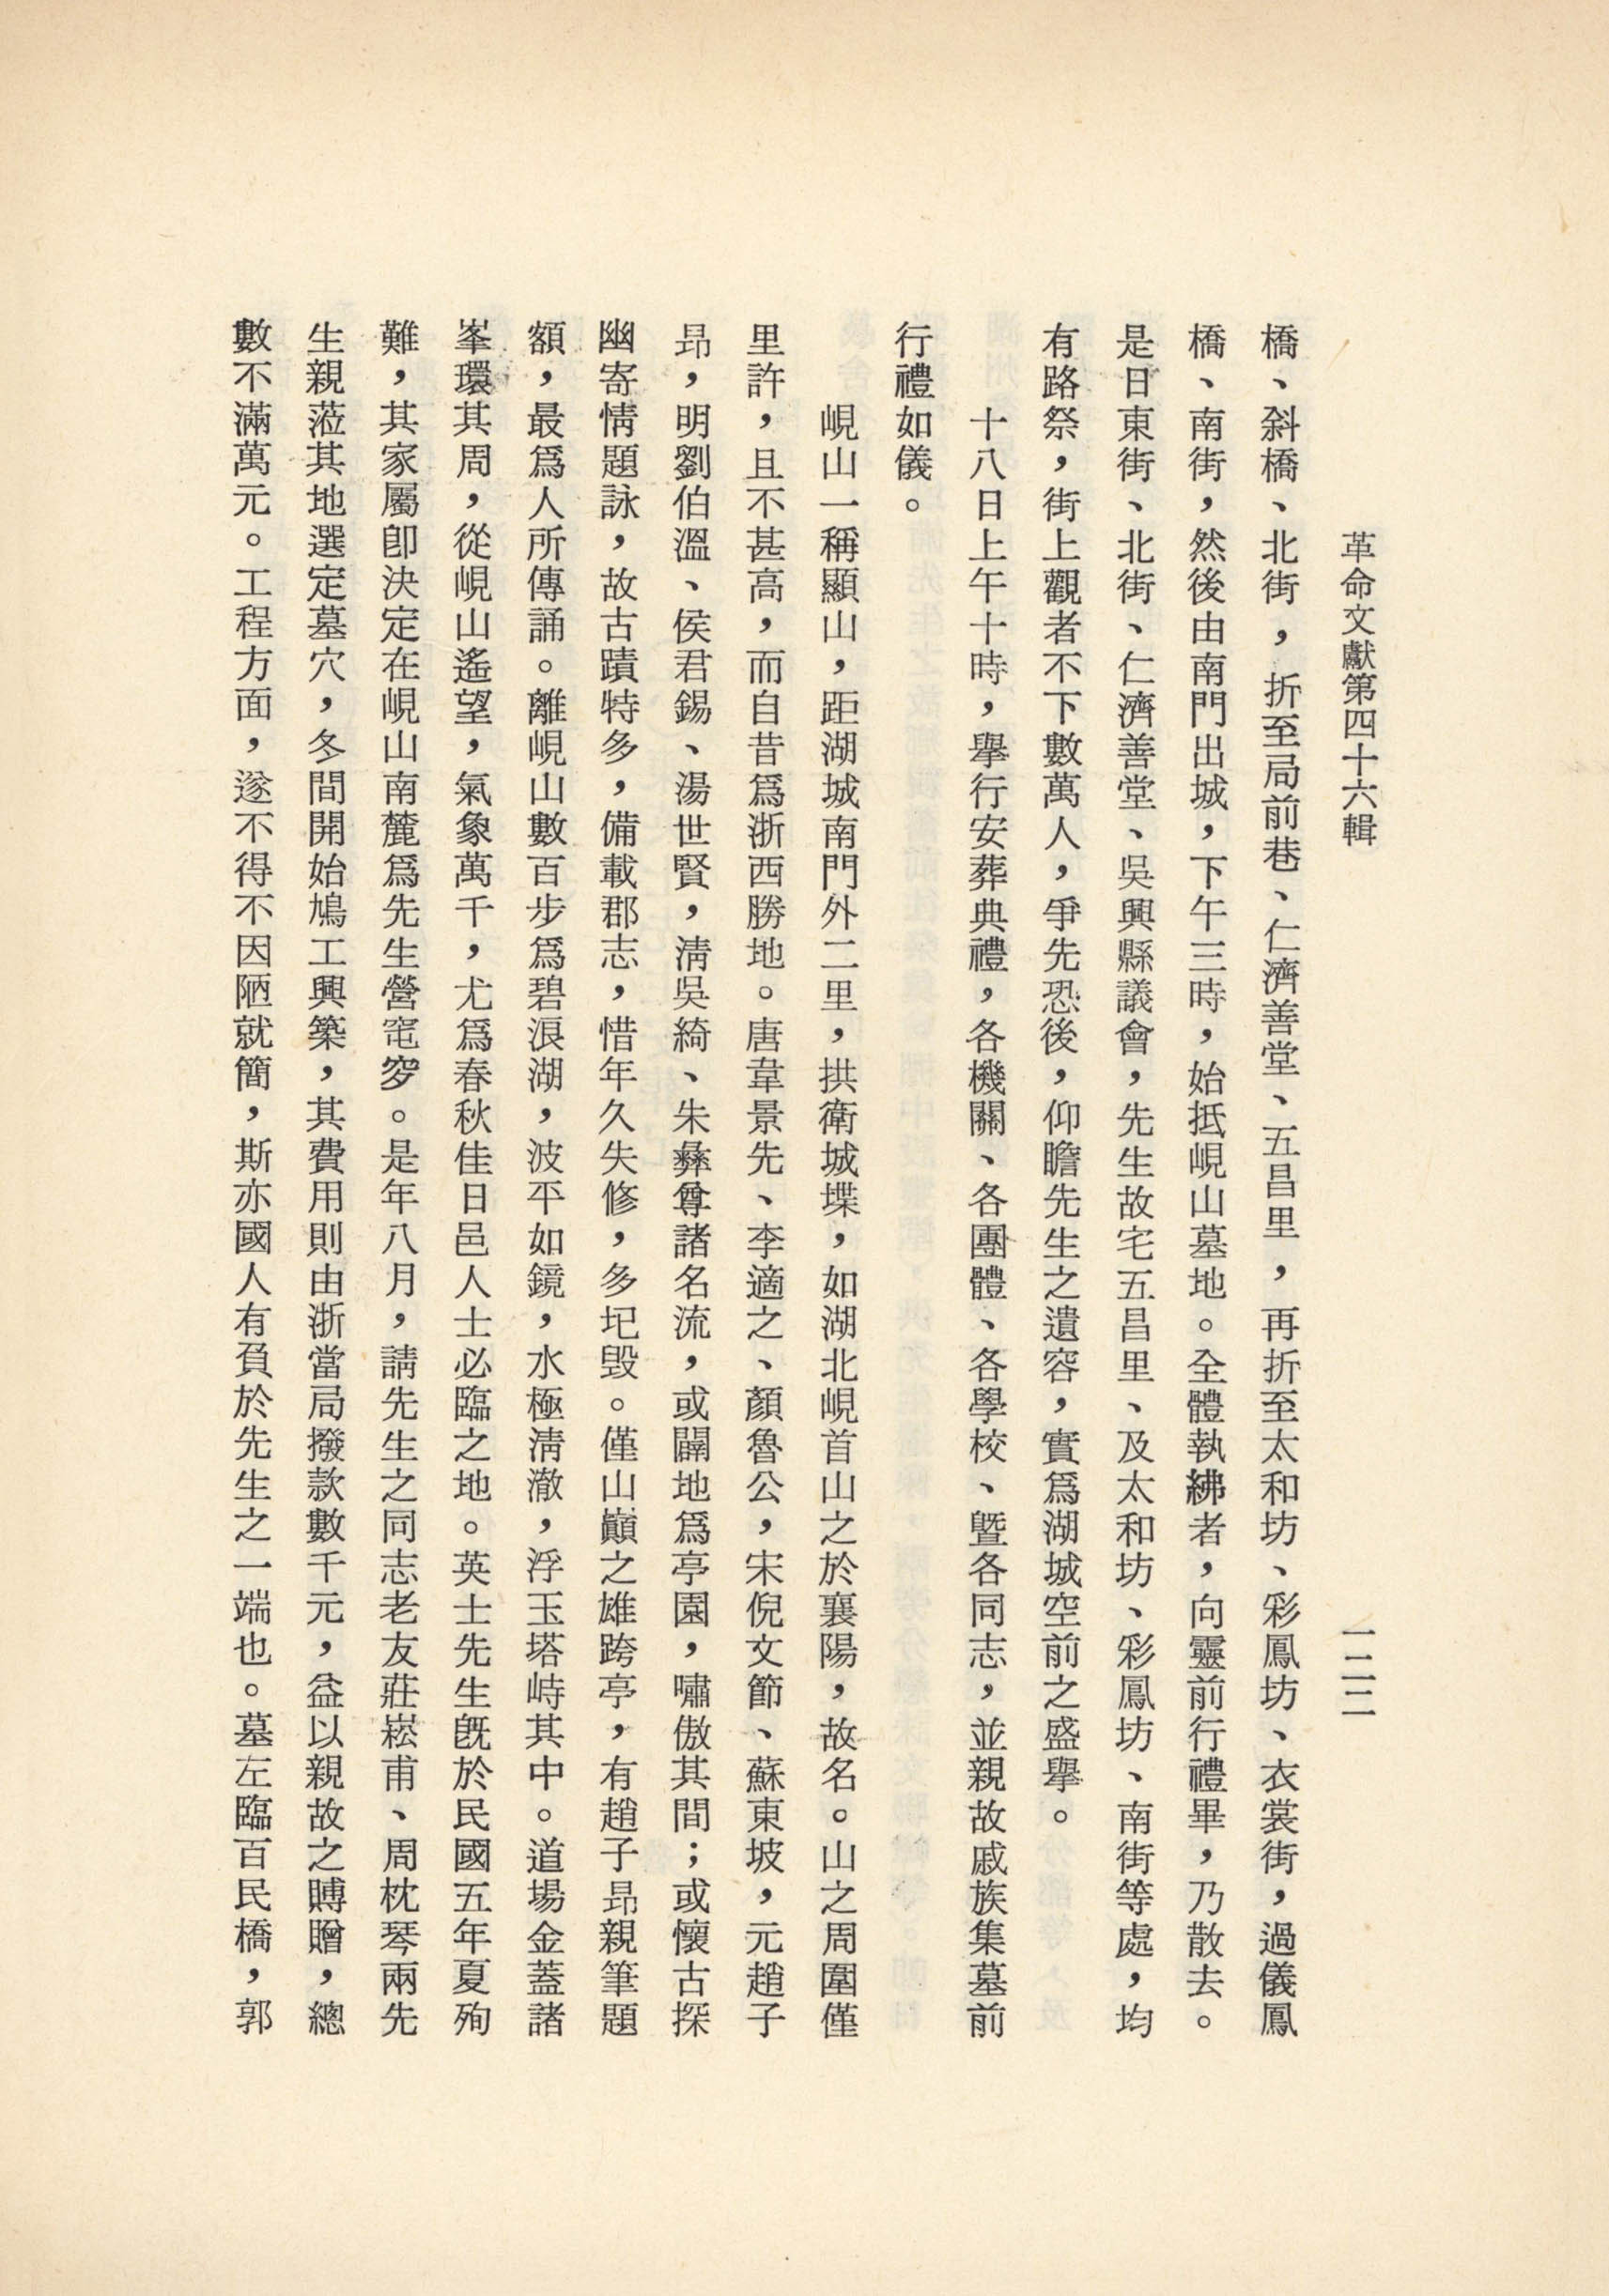 革命文獻第四十六輯
一二二
橋、斜橋、北街，折至局前巷、仁濟善堂、五昌里，再折至太和坊、彩鳳坊、衣裳街，過儀鳳
橋、南街，然後由南門出城，下午三時，始抵峴山墓地。全體執紼者，向靈前行禮畢，乃散去。
是日東街、北街、仁濟善堂、吳興縣議會，先生故宅五昌里、及太和坊、彩鳳坊、南街等處，均
有路祭，街上觀者不下數萬人，爭先恐後，仰瞻先生之遺容，實爲湖城空前之盛擧。
十八日上午十時，擧行安葬典禮，各機關、各團體、各學校、曁各同志，並親故戚族集墓前
行禮如儀。
峴山一稱顯山，距湖城南門外二里，拱衛城堞，如湖北峴首山之於襄陽，故名。山之周圍僅
里許，且不甚高，而自昔爲浙西勝地。唐韋景先、李適之、顏魯公，宋倪文節、蘇東坡，元趙子
昻，明劉伯溫、侯君錫、湯世賢，淸吳綺、朱彝尊諸名流，或闢地爲亭園，嘯傲其間；或懷古探
幽寄情題詠，故古蹟特多，備載郡志，惜年久失修，多圮毀。僅山巔之雄跨亭，有趙子昻親筆題
額，最爲人所傳誦。離峴山數百步爲碧浪湖，波平如鏡，水極淸澈，浮玉塔峙其中。道場金蓋諸
峯環其周，從峴山遙望，氣象萬千，尤爲春秋佳日邑人士必臨之地。英士先生旣於民國五年夏殉
難，其家屬卽決定在峴山南麓爲先生營窀穸。是年八月，請先生之同志老友莊崧甫、周枕琴兩先
生親蒞其地選定墓穴，冬間開始鳩工興築，其費用則由浙當局撥款數千元，益以親故之賻贈，總
數不滿萬元。工程方面，遂不得不因陋就簡，斯亦國人有負於先生之一端也。墓左臨百民橋，郭